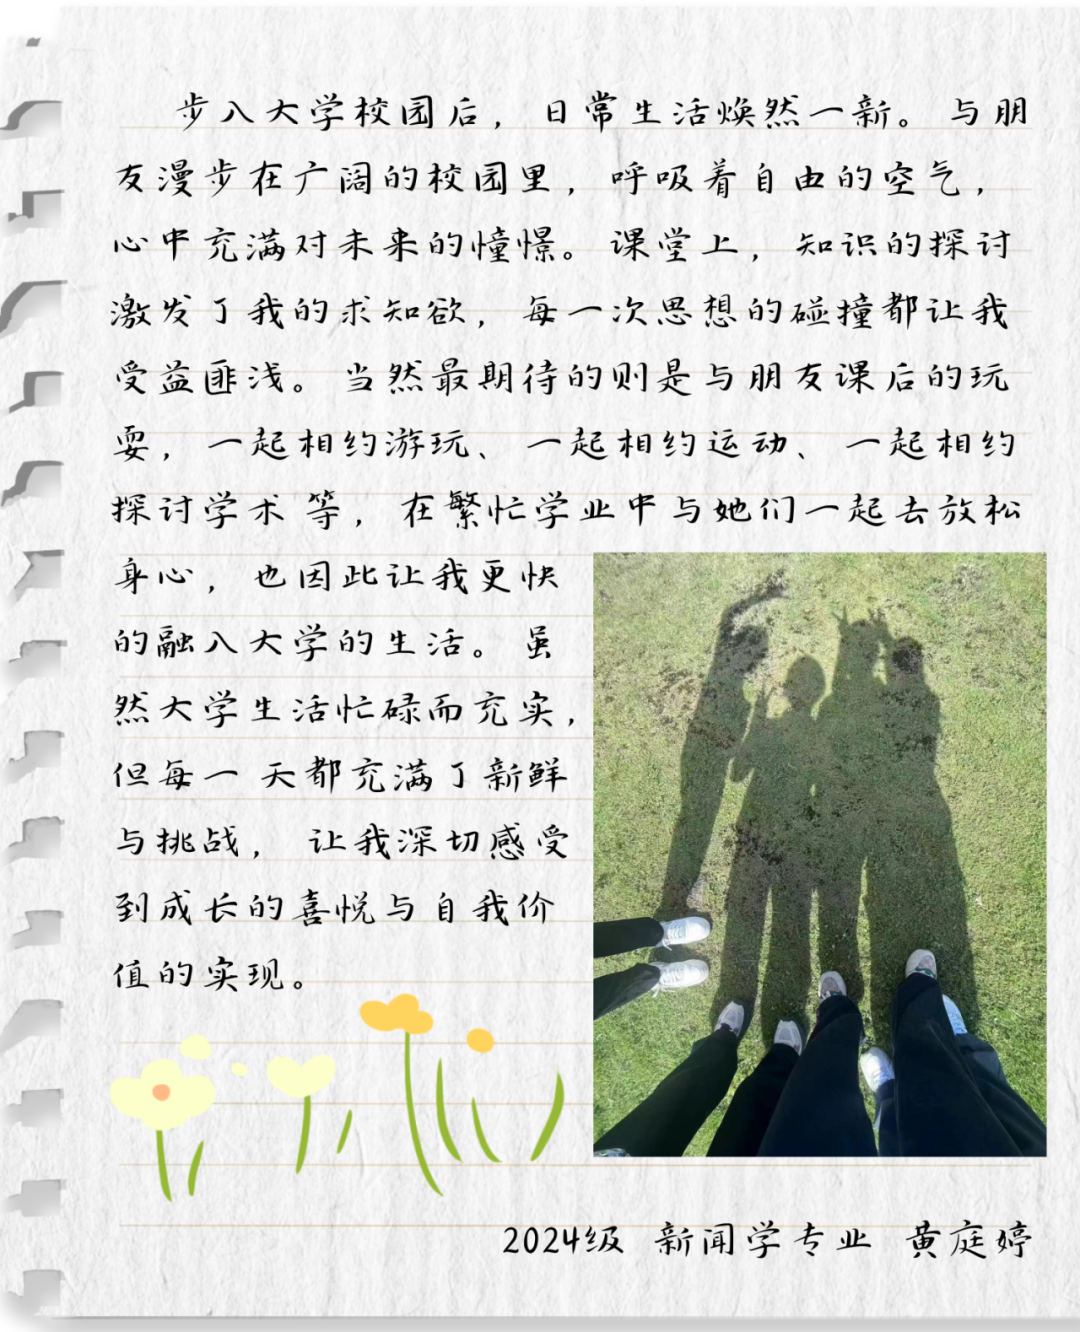 步入大学校园后，日常生活焕然一新。与朋
友漫步在广阔的校园里，呼吸着自由的空气，
心中充满对未来的憧憬。课堂上，知识的探讨
激发了我的求知欲，每一次思想的碰撞都让我
受益匪浅。当然最期待的则是与朋友课后的玩
耍，一起相约游玩、一起相约运动、一起相约
探讨学术等，在繁忙学业中与她们一起去放松
身心，也因此让我更快
的融入大学的生活。虽
然大学生活忙碌而充实，
但每一天都充满了新鲜
与挑战，让我深切感受
到成长的喜悦与自我价
值的实现。
2024级 新闻学专业 黄庭婷